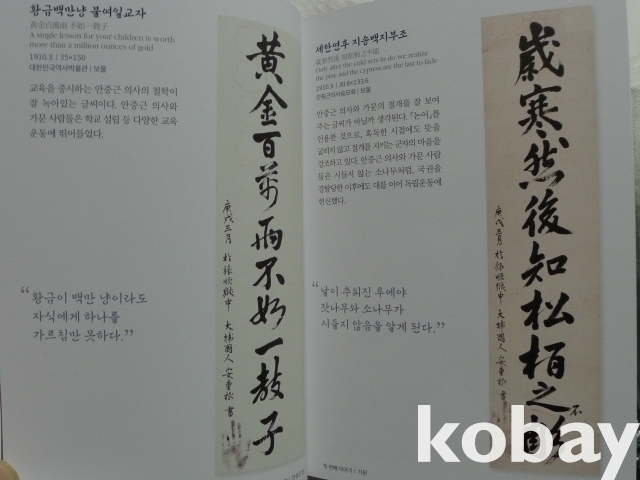 황금백만냥 불여일교자
黃金百萬兩 不如一敎子
A single lesson for your children is worth
more than a million ounces of gold
1910.3 | 35×150
대한민국역사박물관 | 보물
교육을 중시하는 안중근 의사의 철학이
잘 녹아있는 글씨이다. 안중근 의사와
가문 사람들은 학교 설립 등 다양한 교육
운동에 뛰어들었다.
“황금이 백만 냥이라도
자식에게 하나를
가르침만 못하다.”
黃金百萬兩不如一敎子
庚戌三月 於旅順獄中 大韓國人 安重根 書
세한연후 지송백지부조
歲寒然後 知松栢之不彫
Only after the cold sets in do we realize
the pine and the cypress are the last to fade
1910.3 | 30.6×133.6
안중근의사숭모회 | 보물
안중근 의사와 가문의 절개를 잘 보여
주는 글씨가 아닐까 생각된다. 『논어』를
인용한 것으로, 혹독한 시절에도 뜻을
굽히지 않고 절개를 지키는 군자의 마음을
강조하고 있다. 안중근 의사와 가문 사람
들은 시들지 않는 소나무처럼, 국권을
강탈당한 이후에도 대를 이어 독립운동에
헌신했다.
“날이 추워진 후에야
잣나무와 소나무가
시들지 않음을 알게 된다.”
첫 번째 이야기 | 가문
歲寒然後知松栢之不彫
庚戌三月 於旅順獄中 大韓國人 安重根 書
kobay